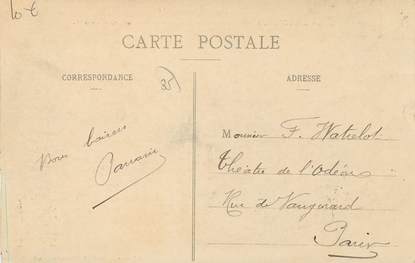 10 €
CARTE POSTALE
CORRESPONDANCE
ADRESSE
35
Monsieur F. Watrelot
Théâtre de l'Odéon
Rue de Vaugirard
Paris
Bons baisers
Parrain